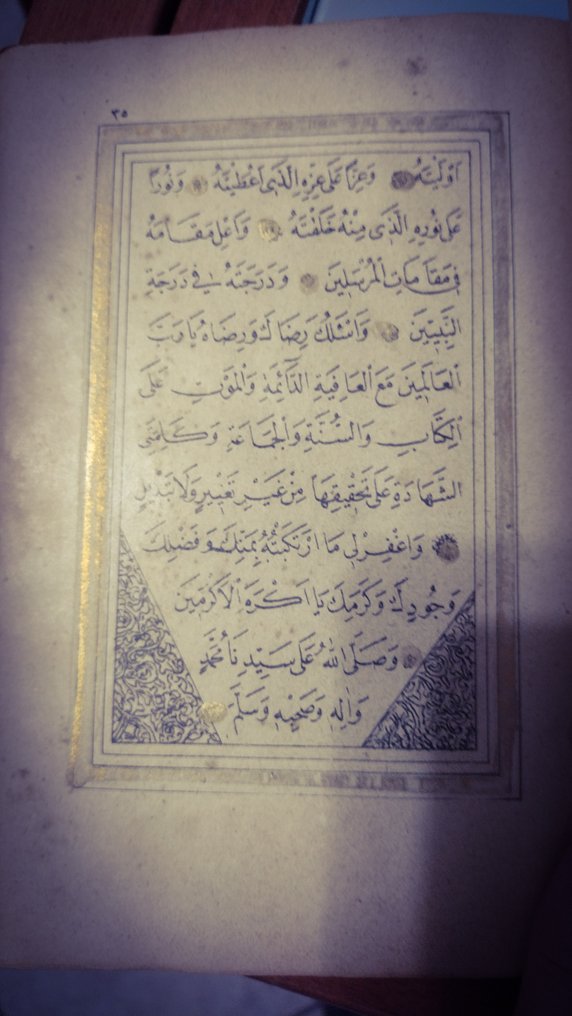 ٣٥
اَوْلَيْتَهُ وَعِزًّا عَلَى عِزِّهِ الَّذِى اَعْطَيْتَهُ وَنُورًا
عَلَى نُورِهِ الَّذِى مِنْهُ خَلَقْتَهُ وَاَعْلِ مَقَامَهُ
فِى مَقَامَاتِ الْمُرْسَلِينَ وَدَرَجَتَهُ فِى دَرَجَةِ
النَّبِيِّينَ وَاَسْئَلُكَ رِضَاكَ وَرِضَاهُ يَا رَبَّ
الْعَالَمِينَ مَعَ الْعَافِيَةِ الدَّائِمَةِ وَالْمَوْتِ عَلَى
الْكِتَابِ وَالسُّنَّةِ وَالْجَمَاعَةِ وَكَلِمَتَىِ
الشَّهَادَةِ عَلَى تَحْقِيقِهَا مِنْ غَيْرِ تَغْيِيرٍ وَلَا تَبْدِيلٍ
وَاغْفِرْ لِى مَا ارْتَكَبْتُهُ بِمَنِّكَ وَفَضْلِكَ
وَجُودِكَ وَكَرَمِكَ يَا اَكْرَمَ الْاَكْرَمِينَ
وَصَلَّى اللهُ عَلَى سَيِّدِنَا مُحَمَّدٍ
وَاٰلِهِ وَصَحْبِهِ وَسَلَّمَ